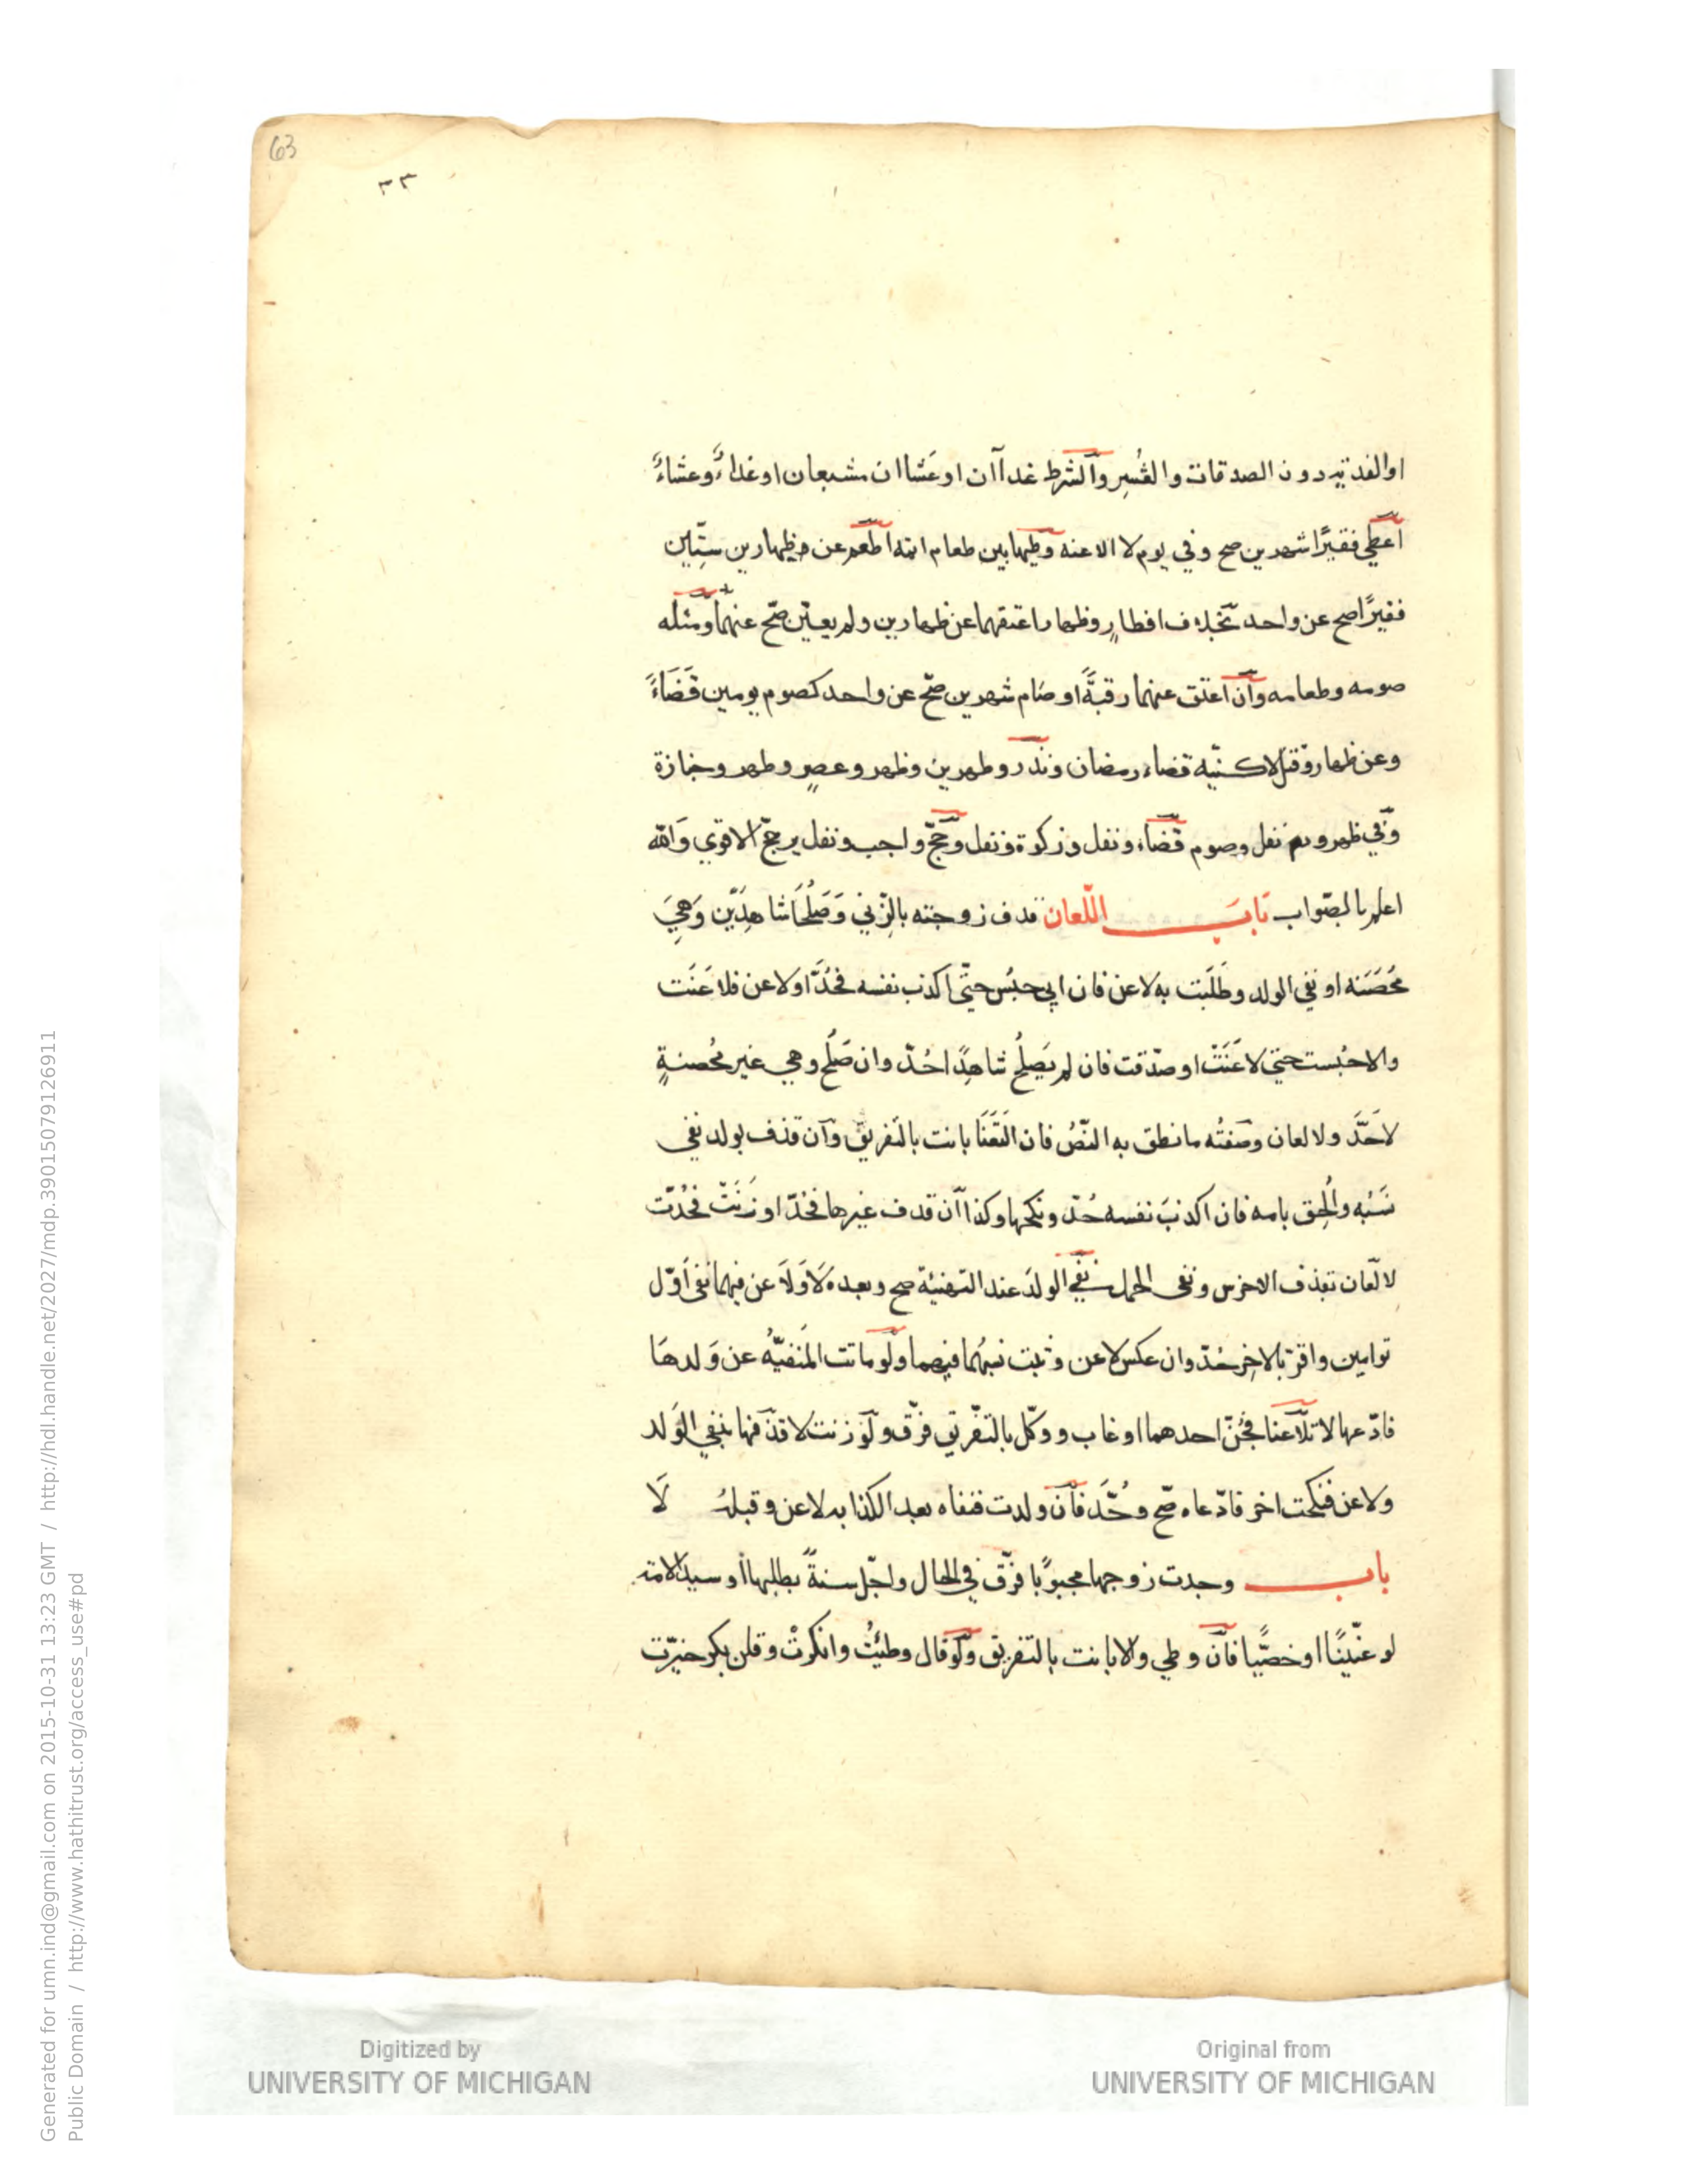 63
٣٣
او الفدية دون الصدقات والعُشر والشرط غداآن او عَشاان مشبعان او غداءً وعشاءً
اعطي فقيرًا شهرين صح وفي يوم لا الا عنه وطيها بين طعام ابته اطعم عن ظهارين ستّين
فقيرًا صح عن واحد بخلاف افطارٍ وظهار اعتقهما عن ظهارين ولم يعيّن صّح عنهما ومثله
صومه وطعامه وآن اعتق عنهما رقبةً او صَام شهرين صّح عن واحد كصوم يومين قَضَاءً
وعن ظهار وقتل لا كنيّه قضاء رمضان ونذر وطهرين وظهر وعصرٍ وطهر وجنازة
وفي ظهر ونفل وصوم قضاء ونفل وزكوة ونفل وحجّ واجب ونفل يرجّح الاقوي وَالله
اعلم بالصّواب بَابَ اللّعان قدف زوجته بالزّني وَصَلُحَا شاهِدَيْن وَهِيَ
مُحصَنَه او نفي الولد وطَلَبَت به لاعن فان ابي حبُس حتّى اكذب نفسه فحُدَّ او لاعن فلاعَنَت
والا حُبست حتي لاعَنَتْ او صدّقت فان لم يَصلُح شاهِدًا حُدّ وان صَلُح وهي غير مُحصنةٍ
لاحَدَّ ولا لعان وصَفتُه ما نطق به النّصُ فان التَعَنَا بانت بالتَفريق وآن قذف بولد نفي
نَسَبُه واُلحِق بامه فان اكذبَ نفسه حُدّ ونكحها وكذا آن قدف غيرها فحُدّ او زَنَتْ فحُدّت
لا لّعان بقذف الاخرس ونفى الحمل نفي الولدَ عند التهنيّة صح وبعده لَا وَلَاعن فيهما نفى اَوّل
توامين واقرّ بالاخر حُدّ وان عكس لاعن وثبت نسبُهُما فيهما ولَو ماتت المَنفيّهُ عن وَلدهَا
فادّعها لا تلَاعنا فجُنّ احدهما او غاب ووكّل بالتفّريق فرّق ولَو زنت لا قذفها بنفي الوَلد
ولاعن فنكحت اخر فادّعاه صّح وحُدَّ فآن ولدت فنفاه بعد الكذابه لاعن وقبلهُ لَا
باب وجدت زوجها مجبوبًا فرّق في الحال واجّل سنةً بطلبها او سيد الامة
لو عنّينًا او خصيًّا فآن وطي والا بانت بالتفريق ولَو قال وطيئْتُ وانكرتْ وقلن بكر خيّرت
Generated for umn.ind@gmail.com on 2015-10-31 13:23 GMT / http://hdl.handle.net/2027/mdp.39015079126911
Public Domain / http://www.hathitrust.org/access_use#pd
Digitized by
UNIVERSITY OF MICHIGAN
Original from
UNIVERSITY OF MICHIGAN